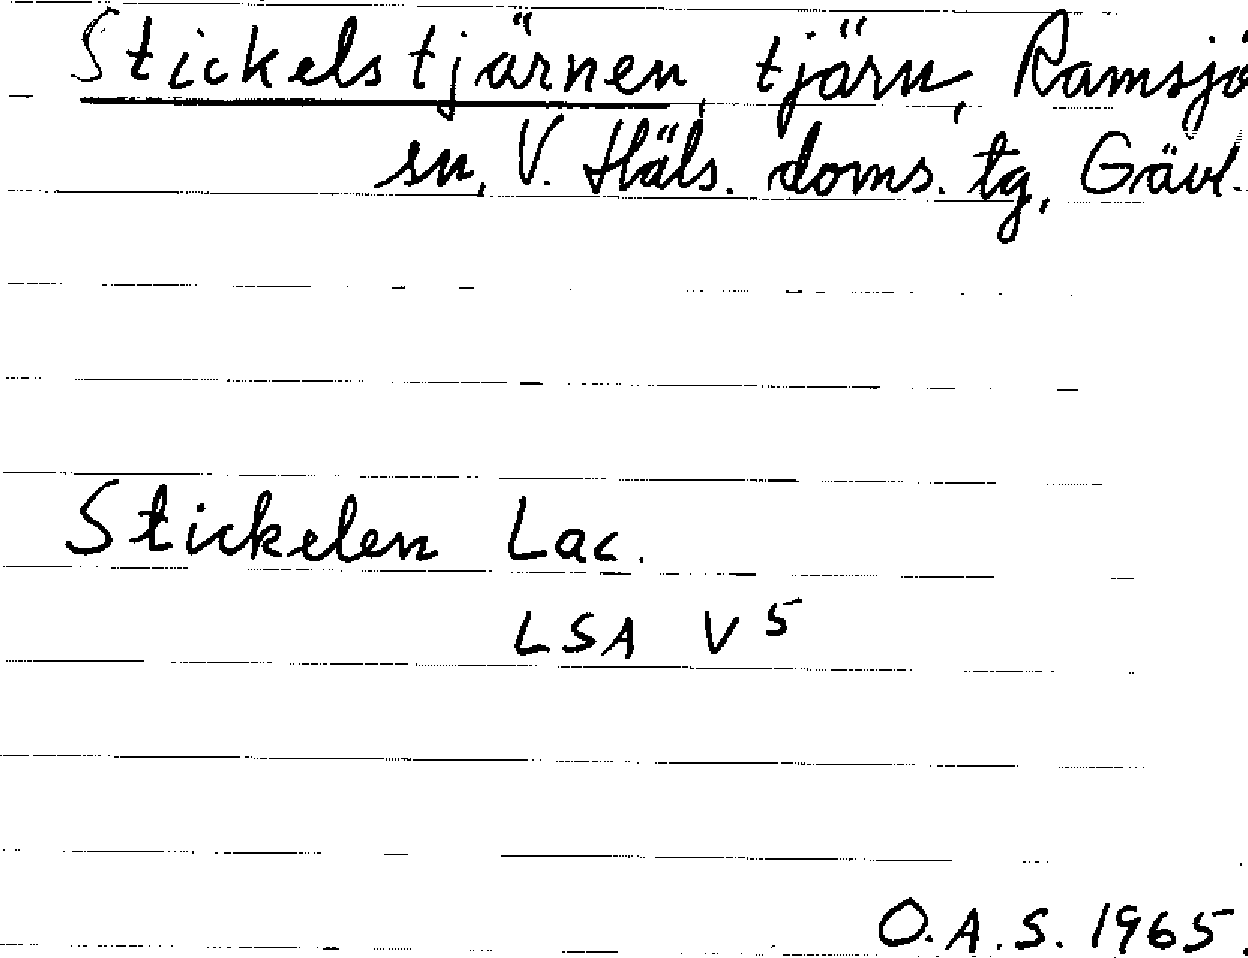 Stickelstjärnen, tjärn, Ramsjö
sn, V. Häls. doms. tg, Gävl.
Stickelen Lac.
LSA V 5
O.A.S. 1965.